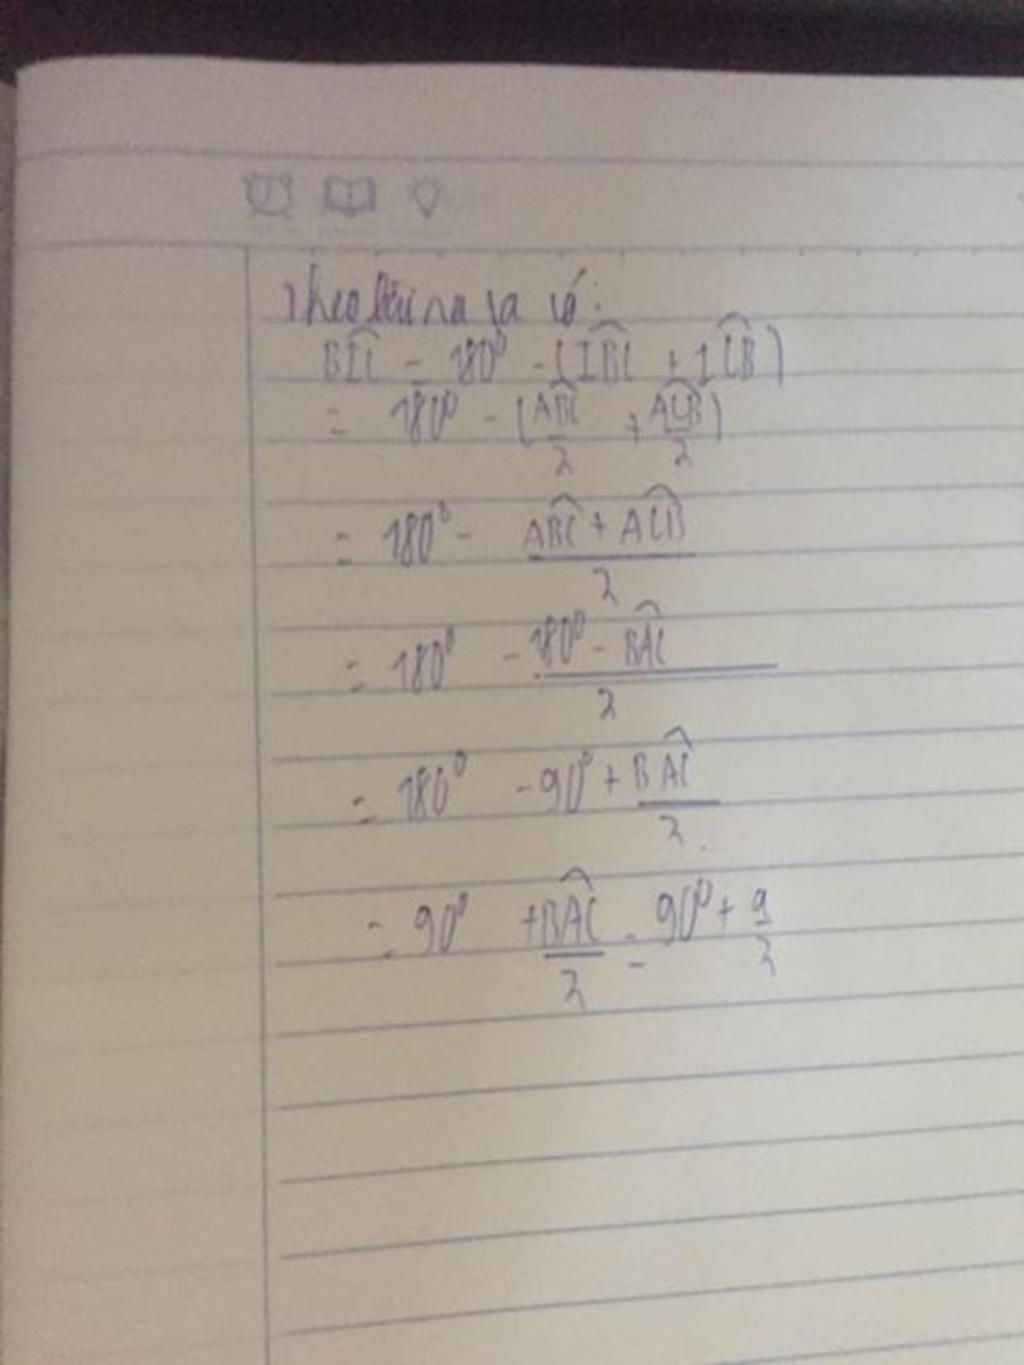 Theo bài ra ta có:
BIC = 180⁰ - (IBC + ICB)
= 180⁰ - (ABC/2 + ACB/2)
= 180⁰ - (ABC + ACB)/2
= 180⁰ - (180⁰ - BAC)/2
= 180⁰ - 90⁰ + BAC/2
= 90⁰ + BAC/2 = 90⁰ + a/2